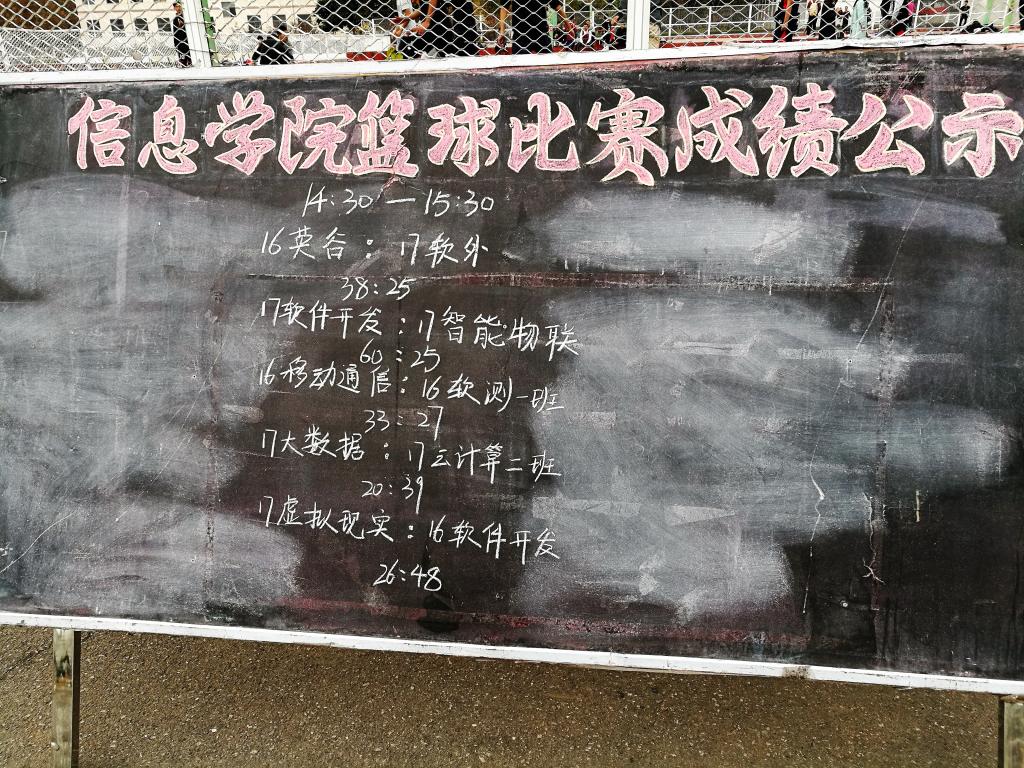 信息学院篮球比赛成绩公示
14:30—15:30
16英谷：17软外
38:25
17软件开发：17智能物联
60:25
16移动通信：16软测一班
33:27
17大数据：17云计算二班
20:39
17虚拟现实：16软件开发
26:48